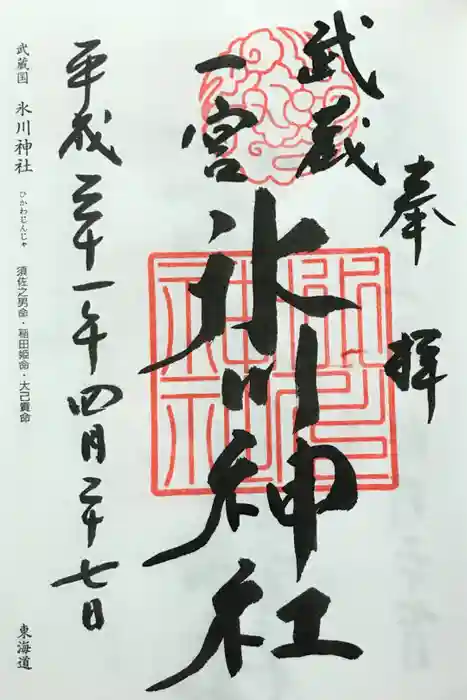 奉拝
武蔵
一宮
氷川神社
平成三十一年四月二十七日
武蔵国 氷川神社 ひかわじんじゃ 須佐之男命・稲田姫命・大己貴命
東海道